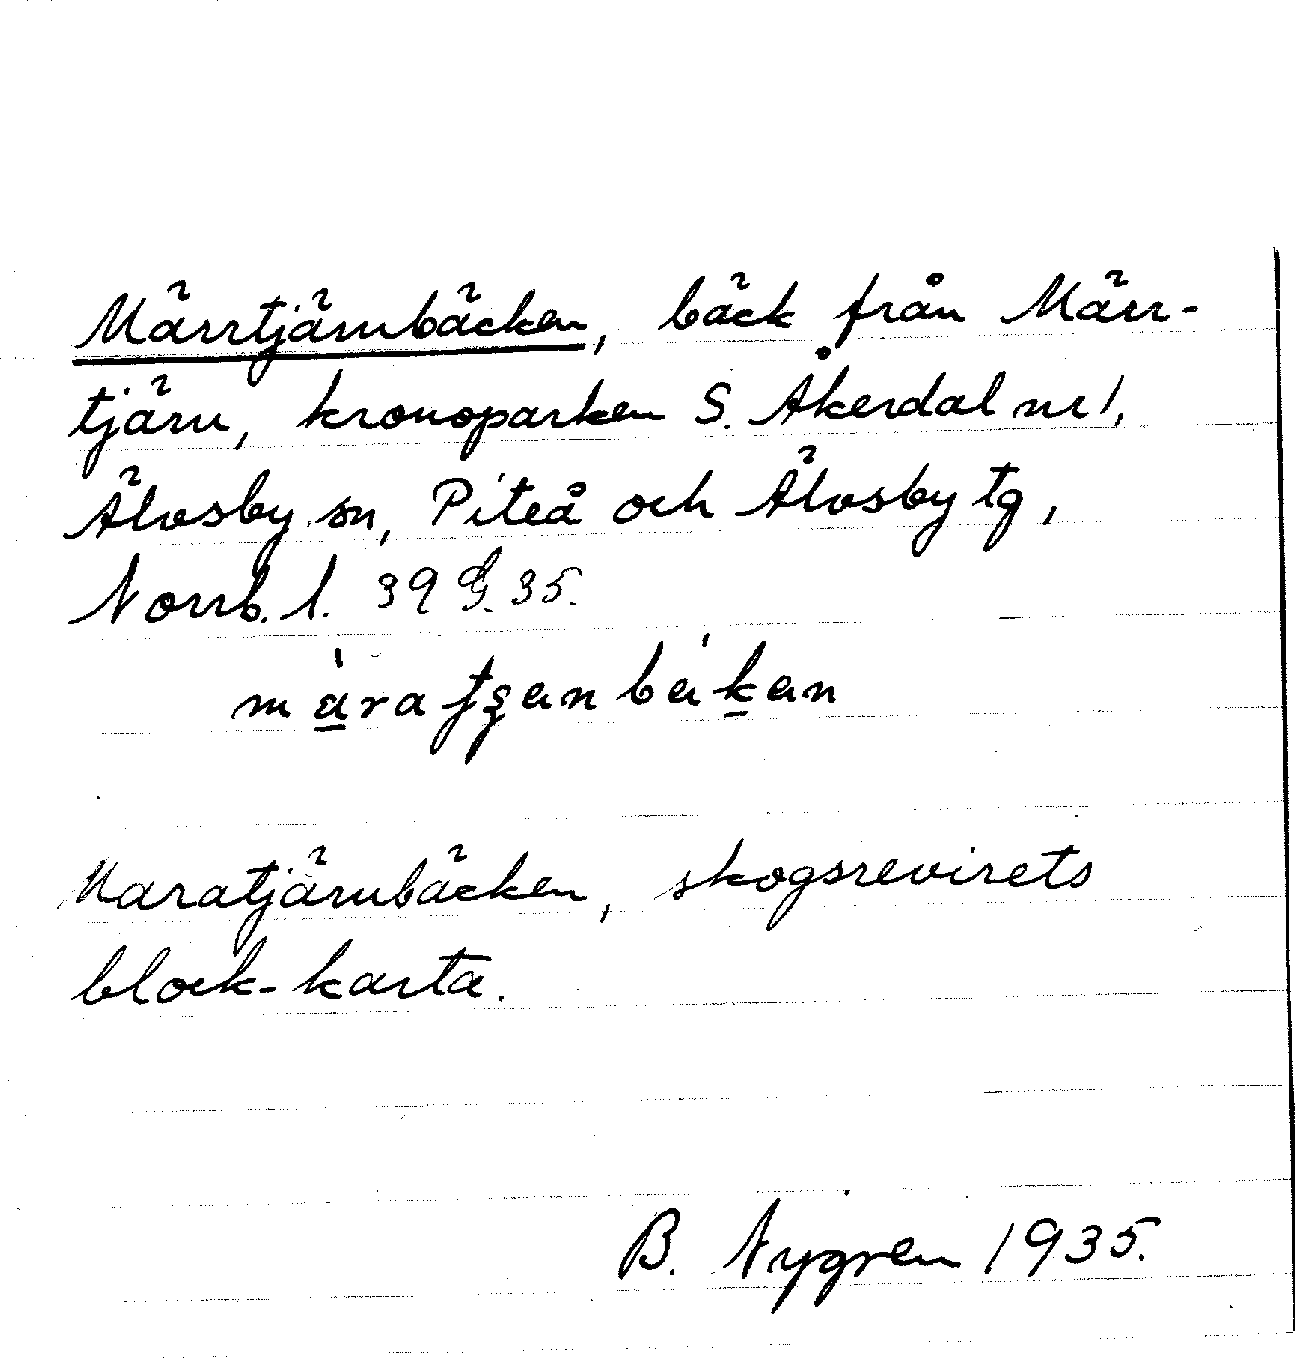 Märrtjärnbäcken, bäck från Märr-
tjärn, kronoparken S. Åkerdal nr 1,
Älvsby sn, Piteå och Älvsby tg,
Norrb. l. 39 G. 35.
Maratjärnbäcken, skogsrevirets
block-karta.
B. Nygren 1935.